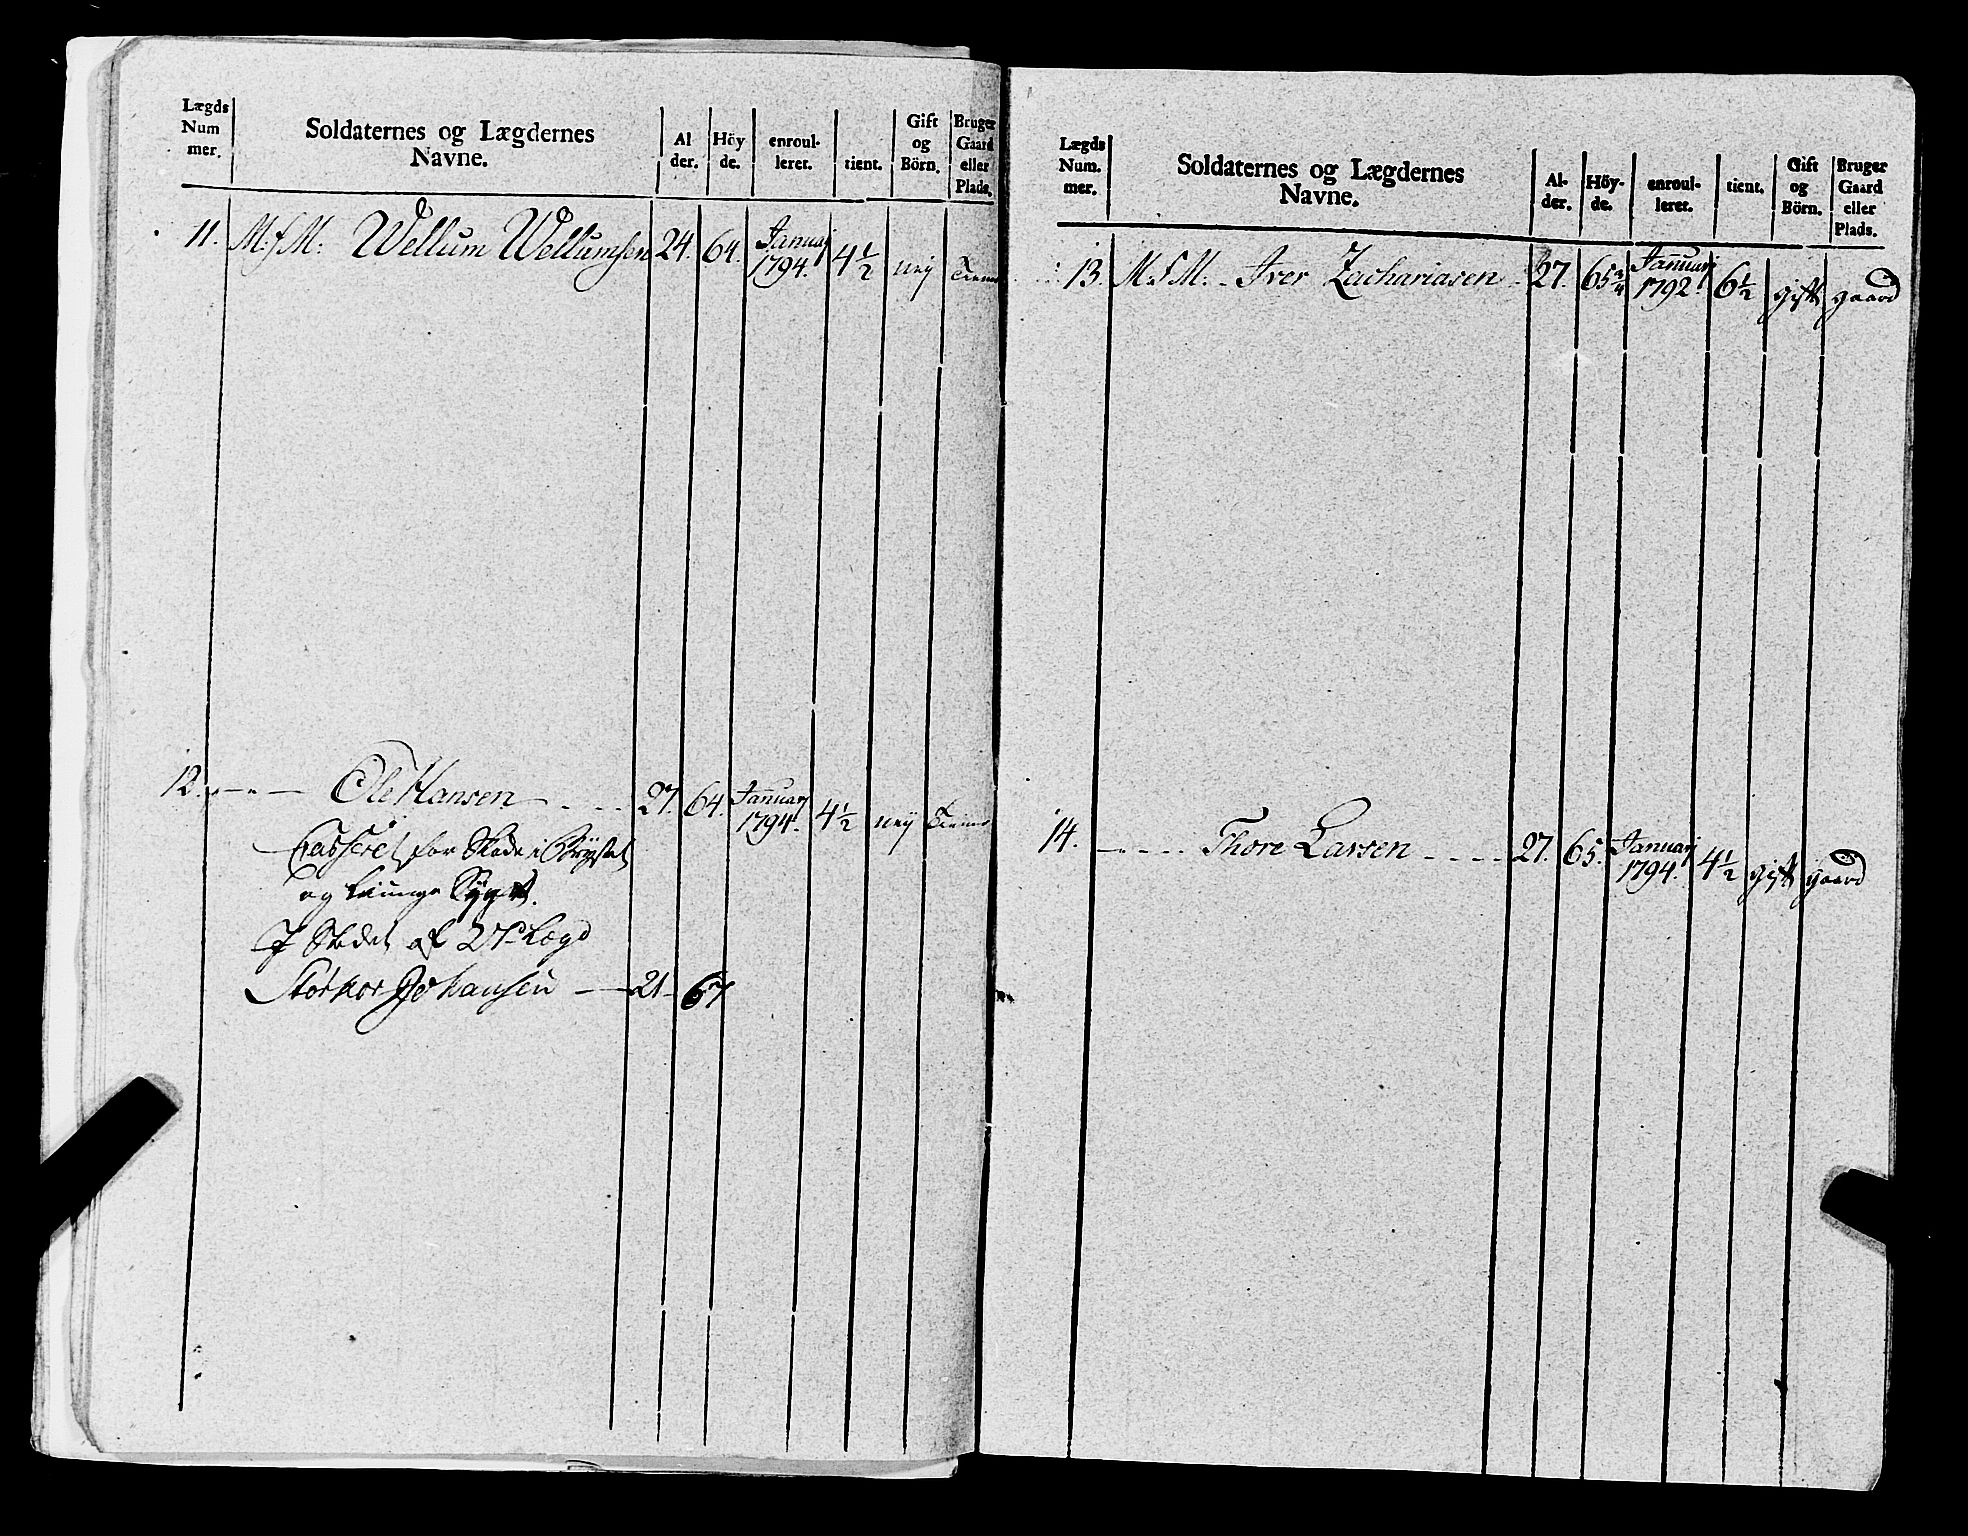 Lægds Num mer. Soldaternes og Lægdernes Navne. Al der. Höy de. enroul- leret. tient. Gift og Börn. Bruger Gaard eller Plads.
11. M. f M. Wellum Wellumsen 24. 64. Januarj 1794. 4 1/2 neij Tiener
12. Ole Hansen 27. 64. Januarj 1794. 4 1/2 neij Tiener
Casseret for Skade i Brystet
og Lunge Syge.
J Stedet af Lægd
Størker Johansen 21 67
Lægds Num. mer. Soldaternes og Lægdernes Navne. Al- der. Höy- de. enroul- leret. tient. Gift og Börn. Bruger Gaard eller Plads.
13. M. f M. Iver Zachariasen 27. 65 3/4 Januarj 1792. 6 1/2 gift gaard
14. Thore Larsen 27. 65. Januarj 1794. 4 1/2 gift gaard